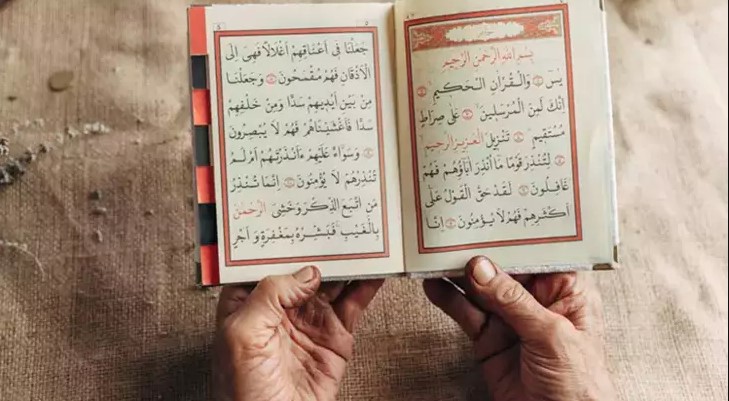 بِسْمِ اللّٰهِ الرَّحْمٰنِ الرَّحٖيمِ
يٰسٓ وَالْقُرْاٰنِ الْحَكٖيمِ
اِنَّكَ لَمِنَ الْمُرْسَلٖينَ عَلٰى صِرَاطٍ
مُسْتَقٖيمٍ تَنْزٖيلَ الْعَزٖيزِ الرَّحٖيمِ
لِتُنْذِرَ قَوْمًا مَٓا اُنْذِرَ اٰبَٓاؤُ۬هُمْ فَهُمْ
غَافِلُونَ لَقَدْ حَقَّ الْقَوْلُ عَلٰٓى
اَكْثَرِهِمْ فَهُمْ لَا يُؤْمِنُونَ اِنَّا
جَعَلْنَا فٖٓى اَعْنَاقِهِمْ اَغْلَالًا فَهِىَ اِلَى
الْاَذْقَانِ فَهُمْ مُقْمَحُونَ وَجَعَلْنَا
مِنْ بَيْنِ اَيْدٖيهِمْ سَدًّا وَمِنْ خَلْفِهِمْ
سَدًّا فَاَغْشَيْنَاهُمْ فَهُمْ لَا يُبْصِرُونَ
وَسَوَٓاءٌ عَلَيْهِمْ ءَاَنْذَرْتَهُمْ اَمْ لَمْ
تُنْذِرْهُمْ لَا يُؤْمِنُونَ اِنَّمَا تُنْذِرُ
مَنِ اتَّبَعَ الذِّكْرَ وَخَشِىَ الرَّحْمٰنَ
بِالْغَيْبِ فَبَشِّرْهُ بِمَغْفِرَةٍ وَاَجْرٍ